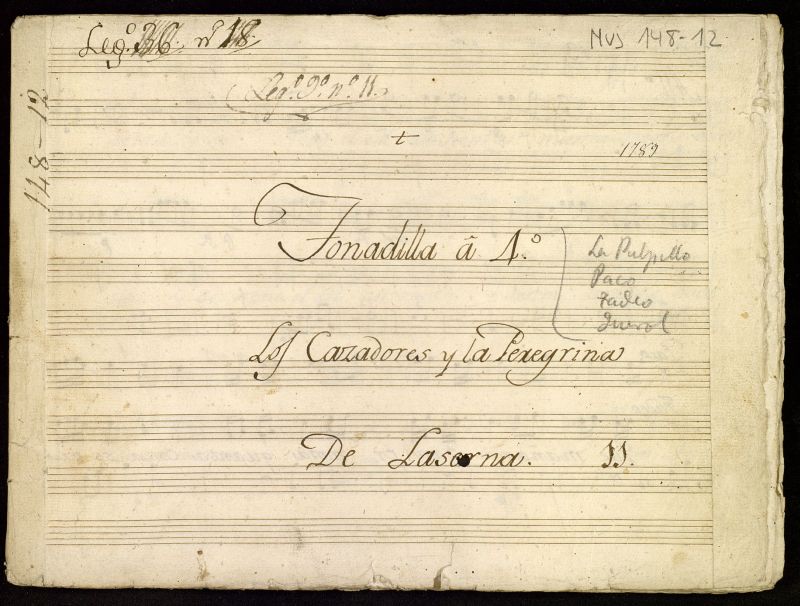 Leg.º 36. nº 18.
MUS 148-12
Leg.º 9º nº 11.
148-12
1789
Tonadilla â 4.º
La Pulpillo
Paco
Tadeo
Querol
Los Cazadores y la Peregrina
De Laserna. 11.